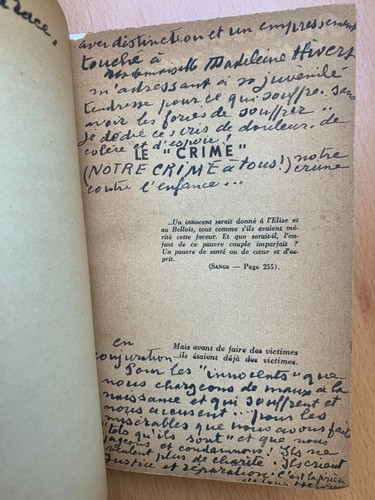 race.
avec distinction et un empressement
touché à
Mademoiselle Madeleine Hivers
m'adressant à sa juvénile
tendresse pour ce qui souffre. sans
avoir les forces de souffrir..
Je dédie ces cris de douleur. de
colère et d'espoir!
LE "CRIME"
(NOTRE CRIME à tous!) notre crime
contre l'enfance...
...Un innocent serait donné à l'Elise et
au Bellois, tout comme s'ils avaient mé-
rité cette faveur. Et que serait-il, l'en-
fant de ce pauvre couple imparfait ?
Un pauvre de santé ou de cœur et d'es-
prit.
(SANGS — Page 255).
en
conjuration
Mais avant de faire des victimes
...ils étaient déjà des victimes
Pour les "innocents" que
nous chargeons de maux à la
naissance et qui souffrent et
nous accusent... pour les
misérables que nous avons faits
"tels qu'ils sont" et que nous
jugeons et condamnons! Ils ne
veulent plus de charité. Ils crient
justice et réparation. C'est la prière